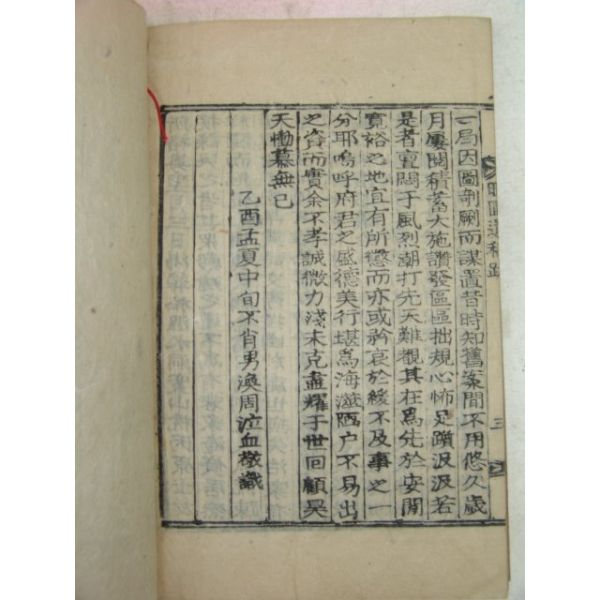 一局因圖剞劂而謀置昔時知舊案間不用悠久歲
月屢閱積蓄大施讚發區區拙規心怖足躓汲汲若
是者亶闕于風烈潮打先天難觀其在爲先於安閒
寬裕之地宜有所懲而亦或矜哀於緩不及事之一
分耶嗚呼府君之感德美行堪爲海澨陋户不易出
之資而實余不孝誠微力淺未克盡耀于世回顧昊
天慟慕無已
乙酉孟夏中旬不肖男渙周泣血敬識
三